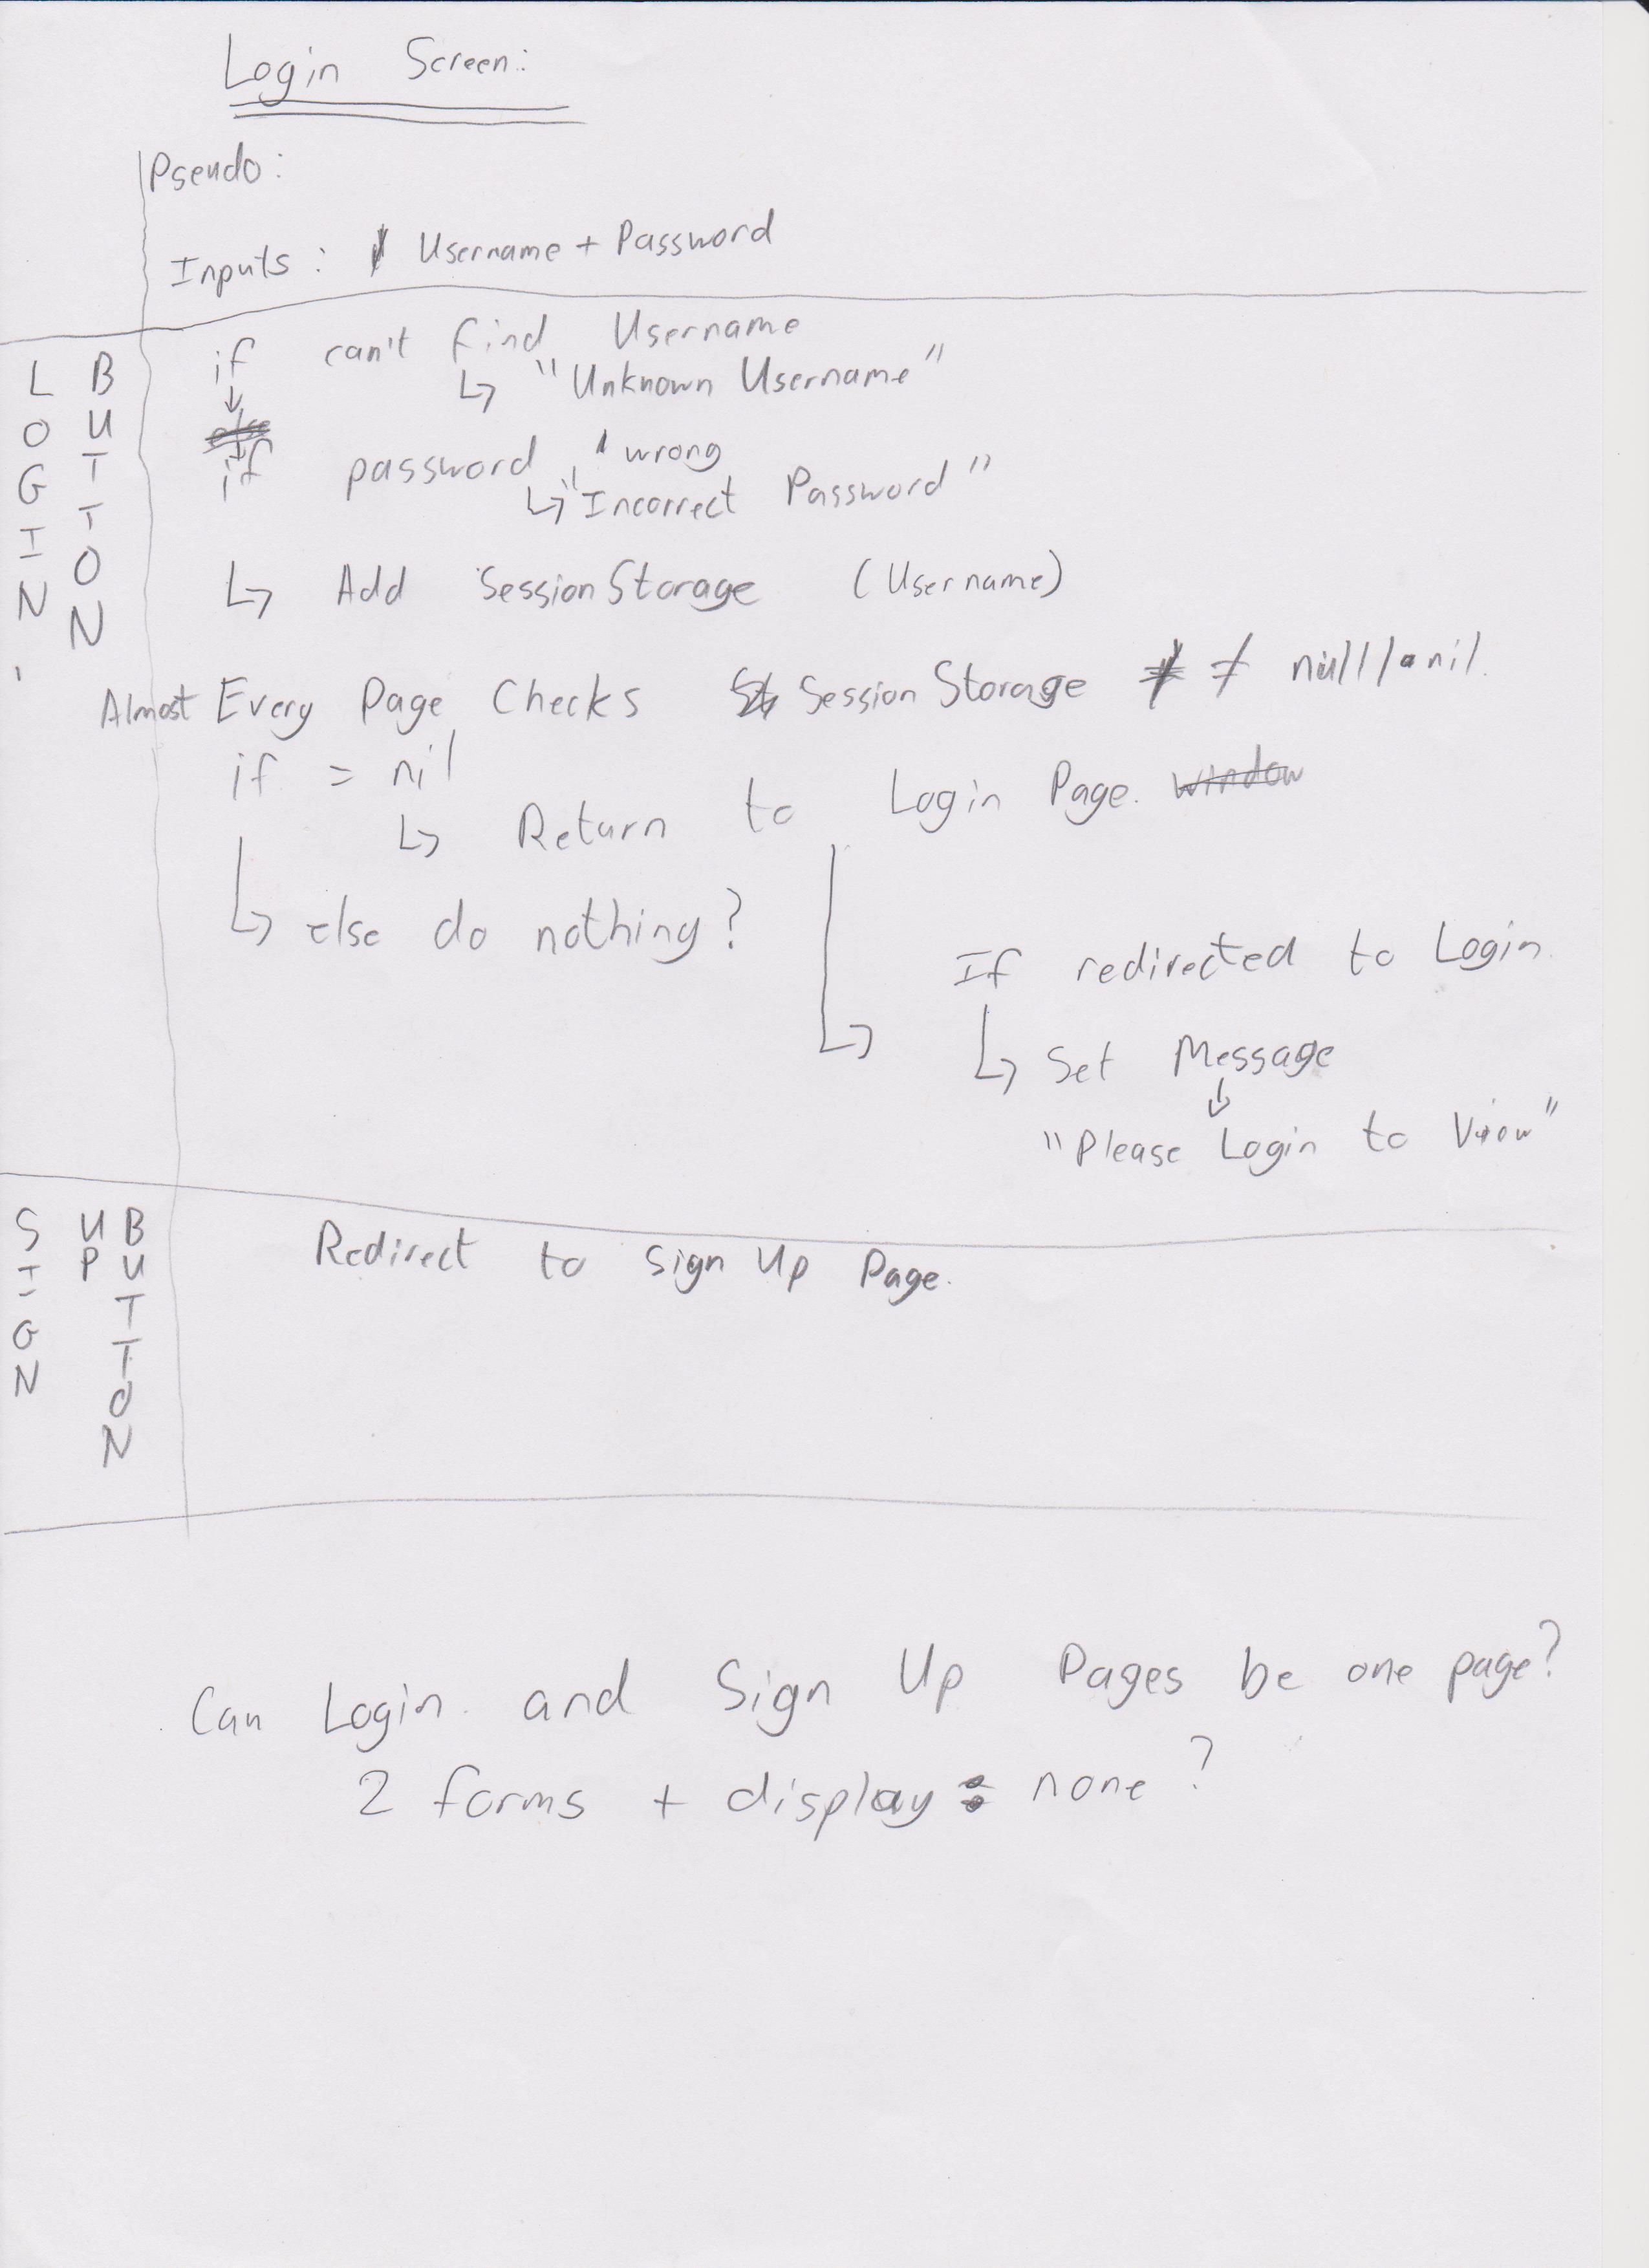 Login Screen:
Pseudo:
Inputs: Username + Password
LOGIN BUTTON
if can't find Username
↳ "Unknown Username"
↓
else
if password wrong
↳ "Incorrect Password"
↳ Add SessionStorage (Username)
Almost Every Page Checks SessionStorage ≠ null/nil.
if = nil
↳ Return to Login Page. window
↳ else do nothing?
↳ If redirected to Login.
↳ Set Message
↓
"Please Login to View"
SIGN UP BUTTON
Redirect to Sign Up Page.
Can Login and Sign Up Pages be one page?
2 forms + display: none?